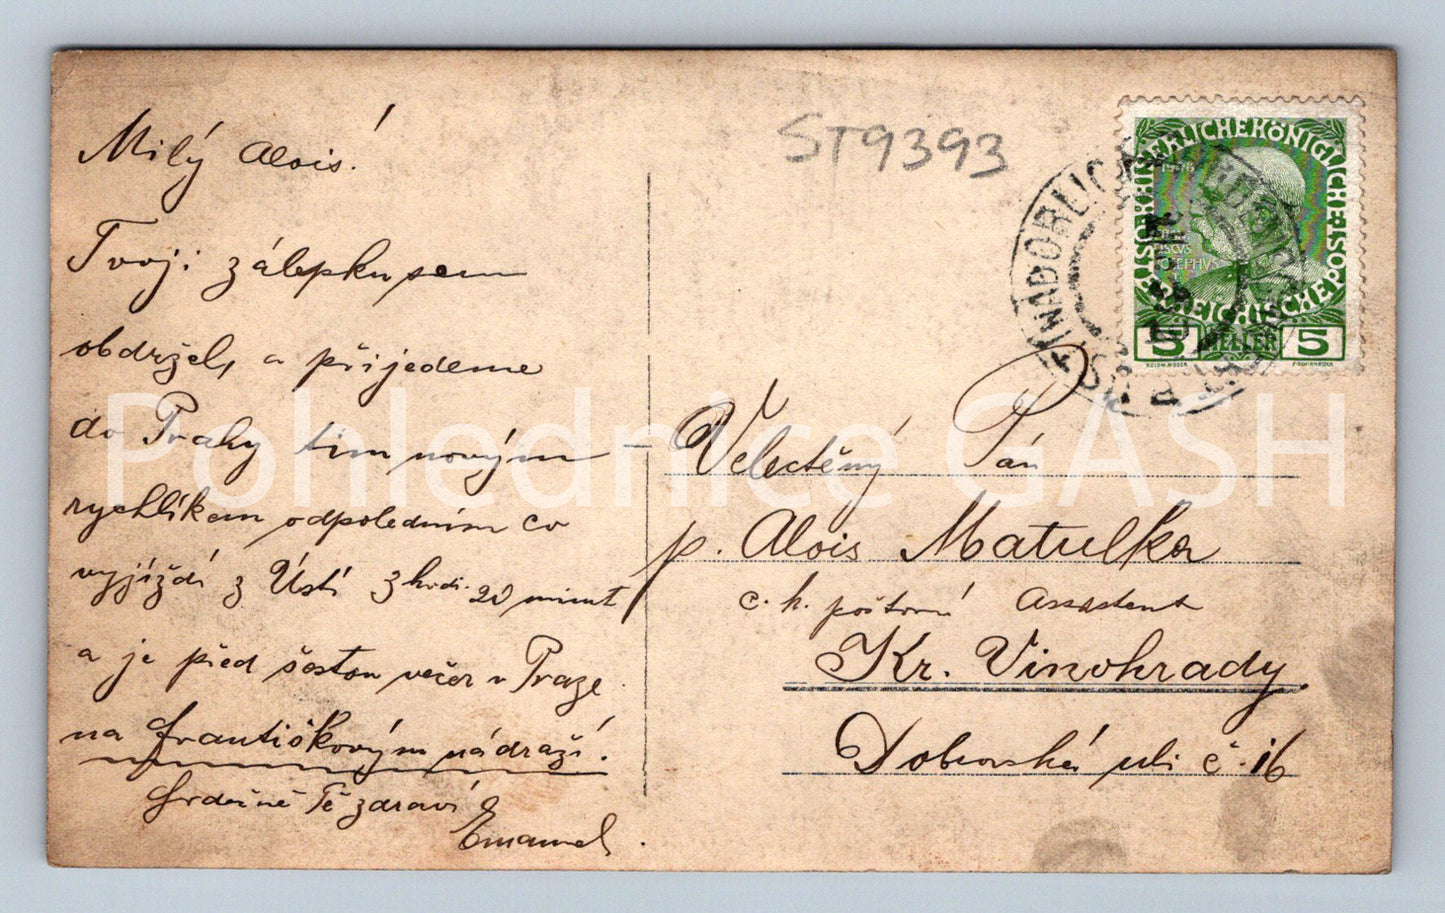 Milý Alois!
Tvoji zálepku sem
obdržel, a přijedeme
do Prahy tim novým
rychlíkem odpoledním co
vyjíždí z Ústí 3 hodi. 20 minut
a je před šestou večer v Praze
na Františkovým nádraží.
Srdečně Tě zdraví
Emanuel.
ST9393
KAISERLICHE KÖNIGLICHE
ÖSTERREICHISCHE POST
JOSEPHVS
5 HELLER 5
Velectěný Pán
p. Alois Matulka
c. k. poštovní Assistent
Kr. Vinohrady
Dobrovská uli č. 16
Pohlednice GASH